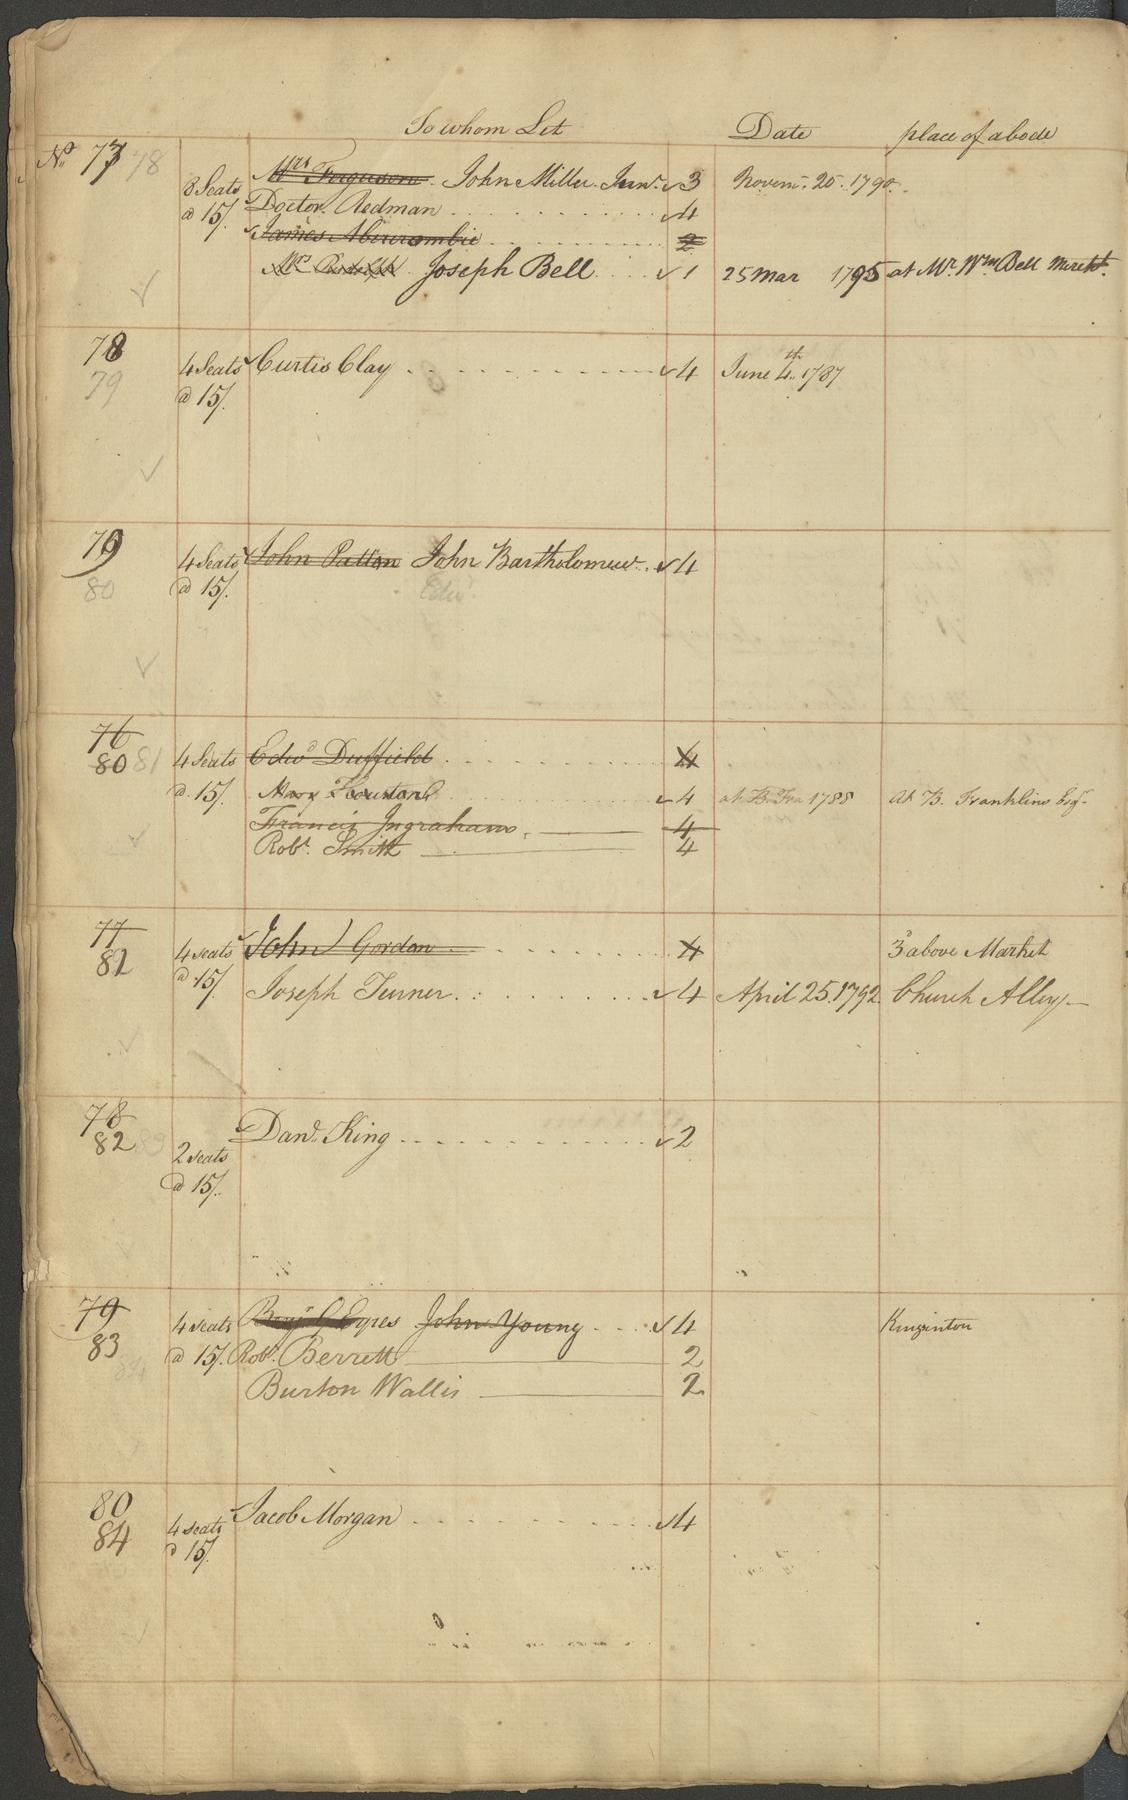 To whom Let Date place of abode
No 77 78
8 Seats Mrs Ferguson. John Miller. Junr. 3 Novem. 20. 1790.
@ 15/. Doctor. Redman 4
James Abercrombie 2
Mrs Joseph Bell 1 25 Mar 1795 at Mr. Wm Bell Mercht.
78
79
4 Seats Curtis Clay 4 June 4th. 1787
@ 15/.
79
80
4 Seats John Patton John Bartholomew. 4
@ 15/. Edwd.
76
80 81
4 Seats Edwd Duffield 4
@ 15/. Mary 4 at B. Fra 1788 At B. Franklins Esqr.
Francis Ingraham, 4
Robt. Smith 4
77
81
4 seats John Gordon 4 3d above Market
@ 15/. Joseph Turner. 4 April 25. 1792. Church Alley
78
82 83
Danl. King 2
2 seats
@ 15/.
79
83
84
4 seats Benj. G Eyres John Young 4 Kinginton
@ 15/. Robt. Berrett 2
Burton Wallis 2
80
84
4 seats Jacob Morgan 4
@ 15/.